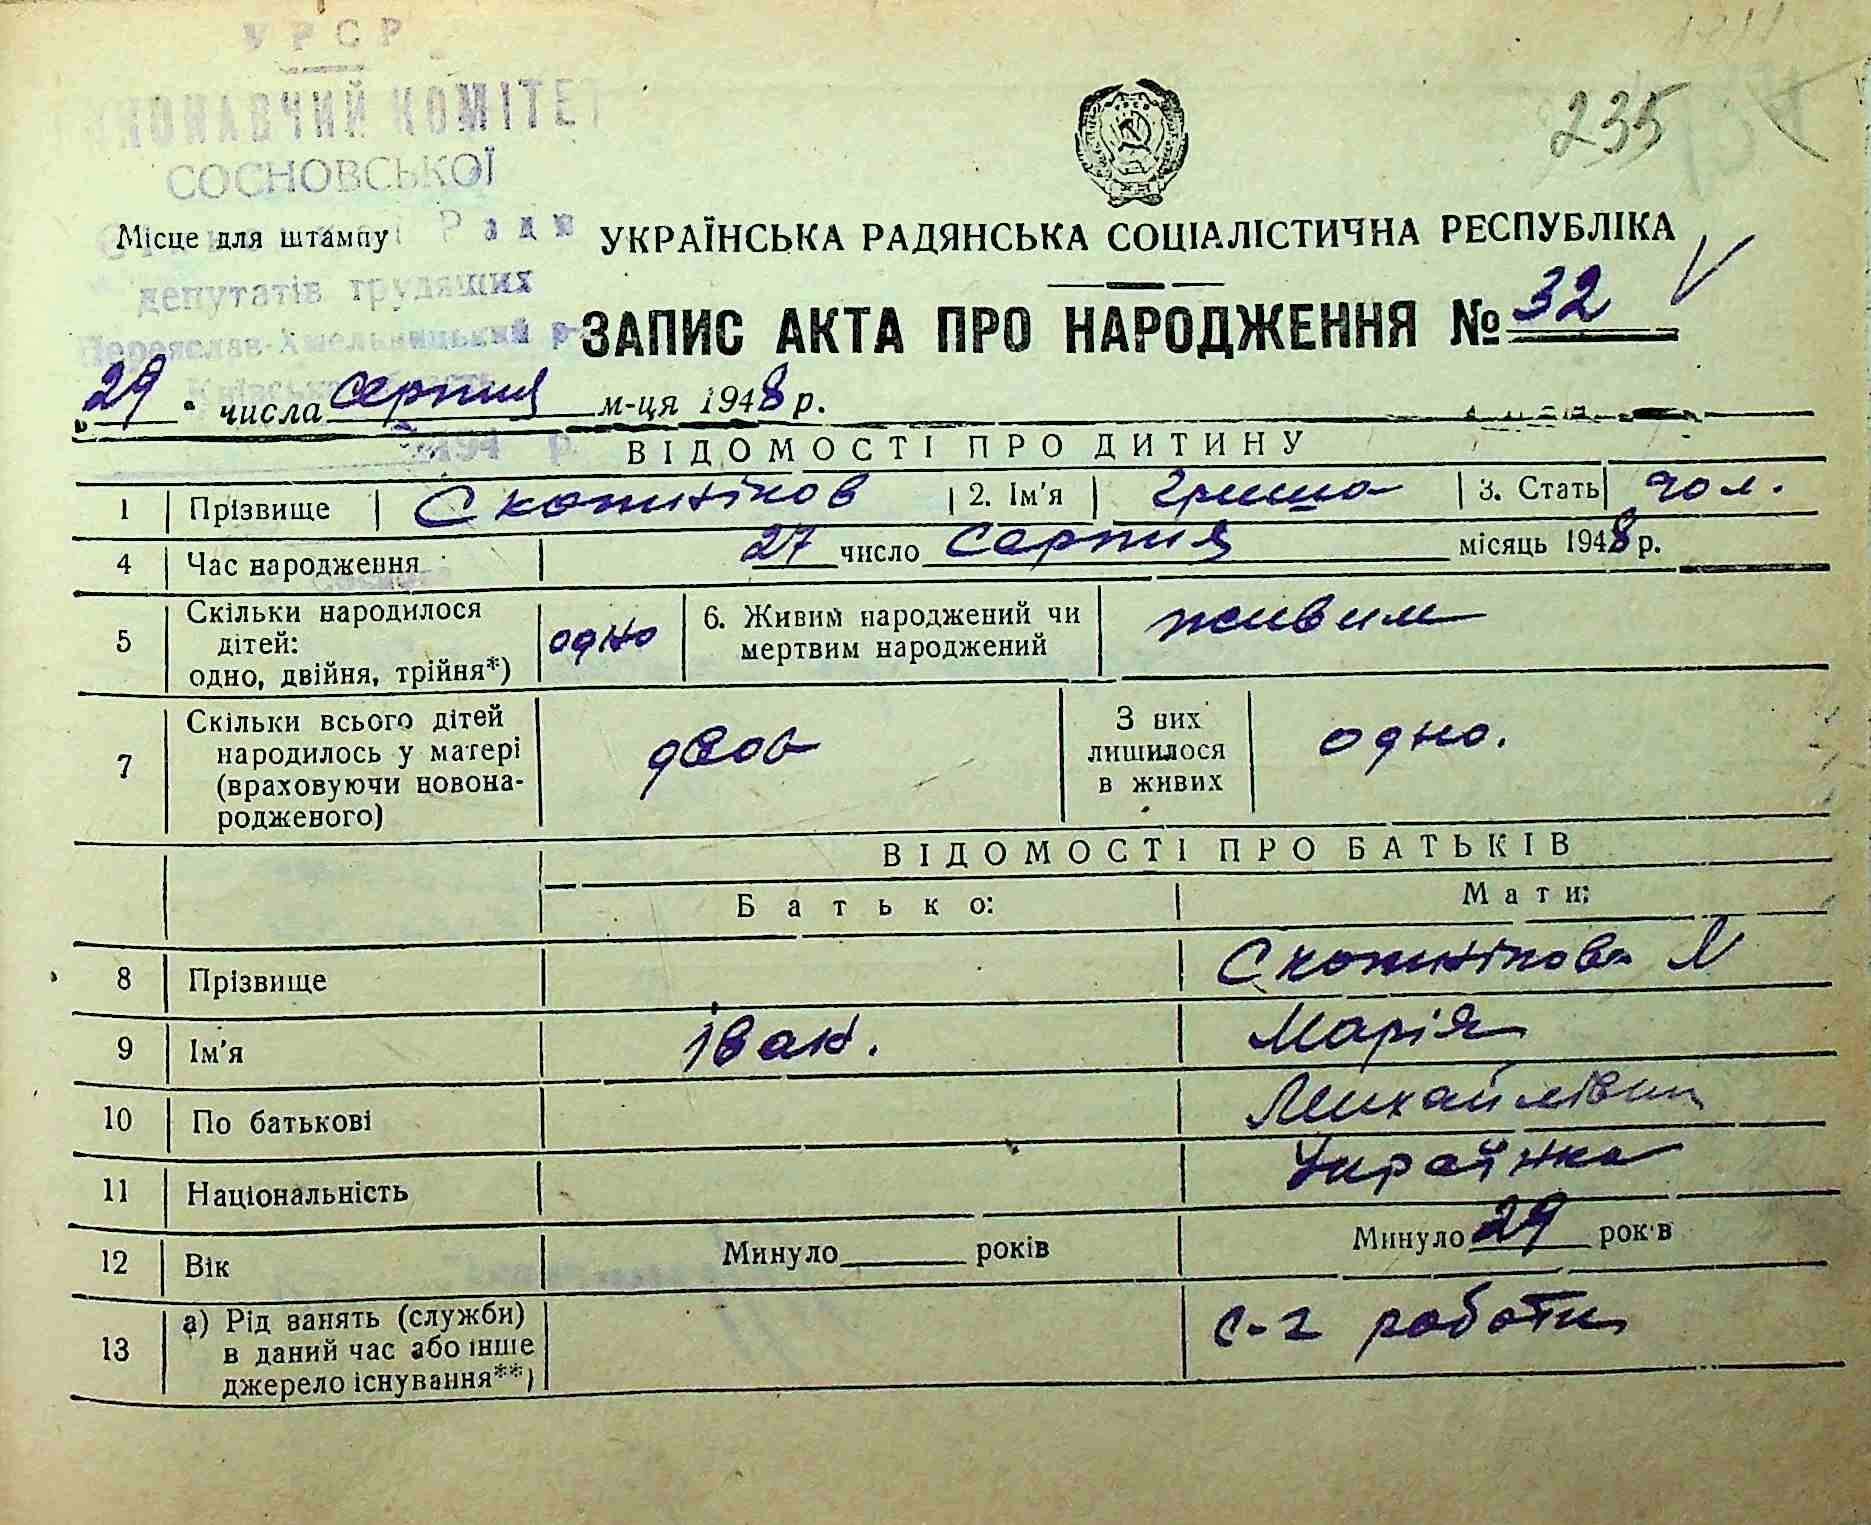 УРСР
КОНАВЧИЙ КОМІТЕТ
СОСНОВСЬКОЇ
Ради
депутатів трудящих
Переяслав-Хмельницький р-
194 р.
235
Місце для штампу
УКРАЇНСЬКА РАДЯНСЬКА СОЦІАЛІСТИЧНА РЕСПУБЛІКА
ЗАПИС АКТА ПРО НАРОДЖЕННЯ № 32
„29" числа серпня м-ця 1948 р.
ВІДОМОСТІ ПРО ДИТИНУ
1 Прізвище 2. Ім'я Гриша 3. Стать чол.
4 Час народження 27 число серпня місяць 1948 р.
5 Скільки народилося дітей: одно, двійня, трійня*) одно 6. Живим народжений чи мертвим народжений живим
7 Скільки всього дітей народилось у матері (враховуючи новонародженого) двоє З них лишилося в живих одно.
ВІДОМОСТІ ПРО БАТЬКІВ
Батько: Мати:
8 Прізвище
9 Ім'я Іван. Марія
10 По батькові Михайлівна
11 Національність Українка
12 Вік Минуло років Минуло 29 років
13 а) Рід занять (служби) в даний час або інше джерело існування**) с-г роботи